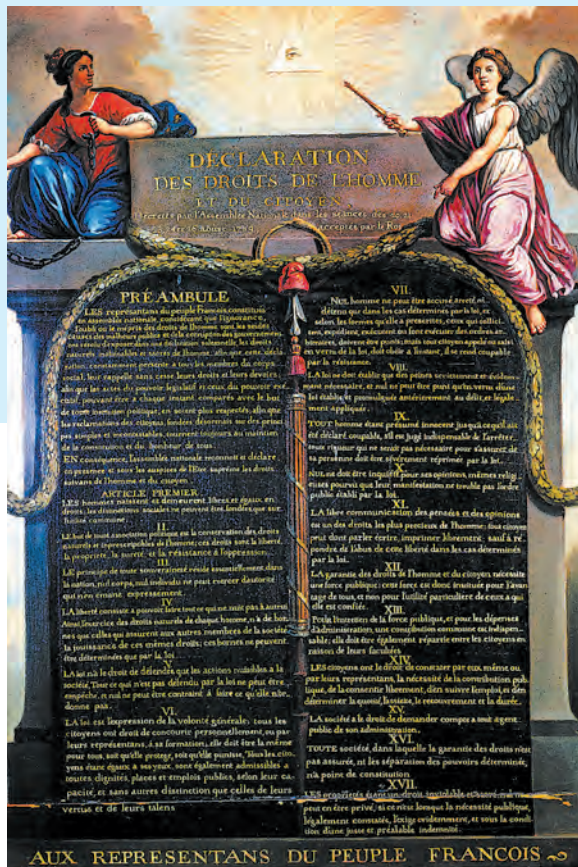 DECLARATION
DES DROITS DE L'HOMME
ET DU CITOYEN
Décretés par l'Assemblée Nationale dans les séances des 20, 21
acceptés par le Roi
PRÉAMBULE
LES représentans du peuple François, constitués
en assemblée nationale, considérant que l'ignorance,
l'oubli ou le mépris des droits de l'homme sont les seules
causes des malheurs publics et de la corruption des gouvernemens,
ont résolu d'exposer dans une déclaration solemnelle, les droits
naturels inaliénables et sacrés de l'homme; afin que cette décla-
ration, constamment présente à tous les membres du corps
social, leur rappelle sans cesse leurs droits et leurs devoirs;
afin que les actes du pouvoir législatif et ceux du pouvoir exé-
cutif, pouvant être à chaque instant comparés avec le but
de toute institution politique, en soient plus respectés; afin que
les réclamations des citoyens, fondées désormais sur des prin-
cipes simples et incontestables, tournent toujours au maintien
de la constitution et du bonheur de tous.
EN conséquence, l'assemblée nationale reconnoit et déclare,
en présence et sous les auspices de l'Etre suprême les droits
suivans de l'homme et du citoyen.
ARTICLE PREMIER.
LES hommes naissent et demeurent libres et égaux en
droits; les distinctions sociales ne peuvent être fondées que sur
l'utilité commune.
II.
LE but de toute association politique est la conservation des droits
naturels et imprescriptibles de l'homme; ces droits sont la liberté,
la propriété, la sureté, et la résistance à l'oppression.
III.
LE principe de toute souveraineté réside essentiellement dans
la nation, nul corps, nul individu ne peut exercer d'autorité
qui n'en émane expressement.
IV.
LA liberté consiste à pouvoir faire tout ce qui ne nuit pas à autrui
Ainsi, l'exercice des droits naturels de chaque homme, n'a de bor-
nes que celles qui assurent aux autres membres de la société
la jouissance de ces mêmes droits; ces bornes ne peuvent
être déterminées que par la loi.
V.
LA loi n'a le droit de défendre que les actions nuisibles à la
société. Tout ce qui n'est pas défendu par la loi ne peut être
empêché, et nul ne peut être contraint à faire ce qu'elle n'or-
donne pas.
VI.
LA loi est l'expression de la volonté générale; tous les
citoyens ont droit de concourir personnellement, ou par
leurs représentans, à sa formation; elle doit être la même
pour tous, soit qu'elle protège, soit qu'elle punisse. Tous les cito-
yens étant égaux à ses yeux, sont également admissibles à
toutes dignités, places et emplois publics, selon leur ca-
pacité, et sans autres distinction que celles de leurs
vertus et de leurs talens
VII.
NUL homme ne peut être accusé, arreté, ni
détenu que dans les cas déterminés par la loi, et
selon les formes qu'elle a prescrites, ceux qui sollici-
tent, expédient, exécutent ou font exécuter des ordres ar-
bitraires, doivent être punis; mais tout citoyen appelé ou saisi
en vertu de la loi, doit obéir à l'instant, il se rend coupable
par la résistance.
VIII.
LA loi ne doit établir que des peines strictement et évidem-
ment nécessaire, et nul ne peut être puni qu'en vertu d'une
loi établie et promulguée antérieurement au délit, et légale-
ment appliquée.
IX.
TOUT homme étant présumé innocent jusqu'à ce qu'il ait
été déclaré coupable, s'il est jugé indispensable de l'arrêter,
toute rigueur qui ne serait pas nécessaire pour s'assurer de
sa personne doit être sévèrement réprimée par la loi.
X.
NUL ne doit être inquiété pour ses opinions, mêmes religi-
euses pourvu que leur manifestation ne trouble pas l'ordre
public établi par la loi.
XI.
LA libre communication des pensées et des opinions
est un des droits les plus precieux de l'homme; tout citoyen
peut donc parler écrire, imprimer librement: sauf à ré-
pondre de l'abus de cette liberté dans les cas déterminés
par la loi.
XII.
LA garantie des droits de l'homme et du citoyen, nécessite
une force publique; cette force est donc instituée pour l'avan-
tage de tous, et non pour l'utilité particuliere de ceux a qui
elle est confiée.
XIII.
POUR l'entretien de la force publique, et pour les dépenses
d'administration, une contribution commune est indispen-
sable; elle doit être également répartie entre les citoyens en
raison de leurs facultées
XIV.
LES citoyens ont le droit de constater par eux même ou
par leurs représentans, la nécessité de la contribution pub-
lique, de la consentir librement, d'en suivre l'emploi, et d'en
déterminer la quotité, l'assiette, le recouvrement et la durée.
XV.
LA société a le droit de demander compte a tout agent
public de son administration.
XVI.
TOUTE société, dans laquelle la garantie des droits n'est
pas assurée, ni les séparation des pouvoirs déterminée,
n'a point de constitution
XVII.
LES propriétés étant un droit inviolable et sacré, nul ne
peut en être privé, si ce n'est lorsque la nécessité publique,
légalement constatée, l'exige evidemment, et sous la condi-
tion d'une juste et préalable indemnité.
AUX REPRESENTANS DU PEUPLE FRANCOIS